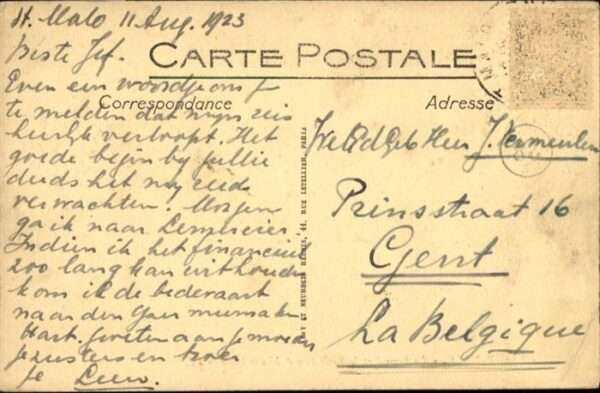 St. Malo 11 Aug. 1923
Beste Jef.
CARTE POSTALE
Correspondance
Adresse
Even een woordje om je
te melden dat mijn reis
heerlijk verloopt. Het
goede begin bij jullie
deeds het mij reeds
verwachten! Morgen
ga ik naar
Indien ik het financieel
zoo lang kan uithouden
kom ik de bedevaart
naar den Yser meemaken
Hart. groeten aan je moeder
je zusters en broer
je Leew.
WelEdGeb Heer J. Vermeulen
Prinsstraat 16
Gent
La Belgique
RUE LETELLIER, PARIS